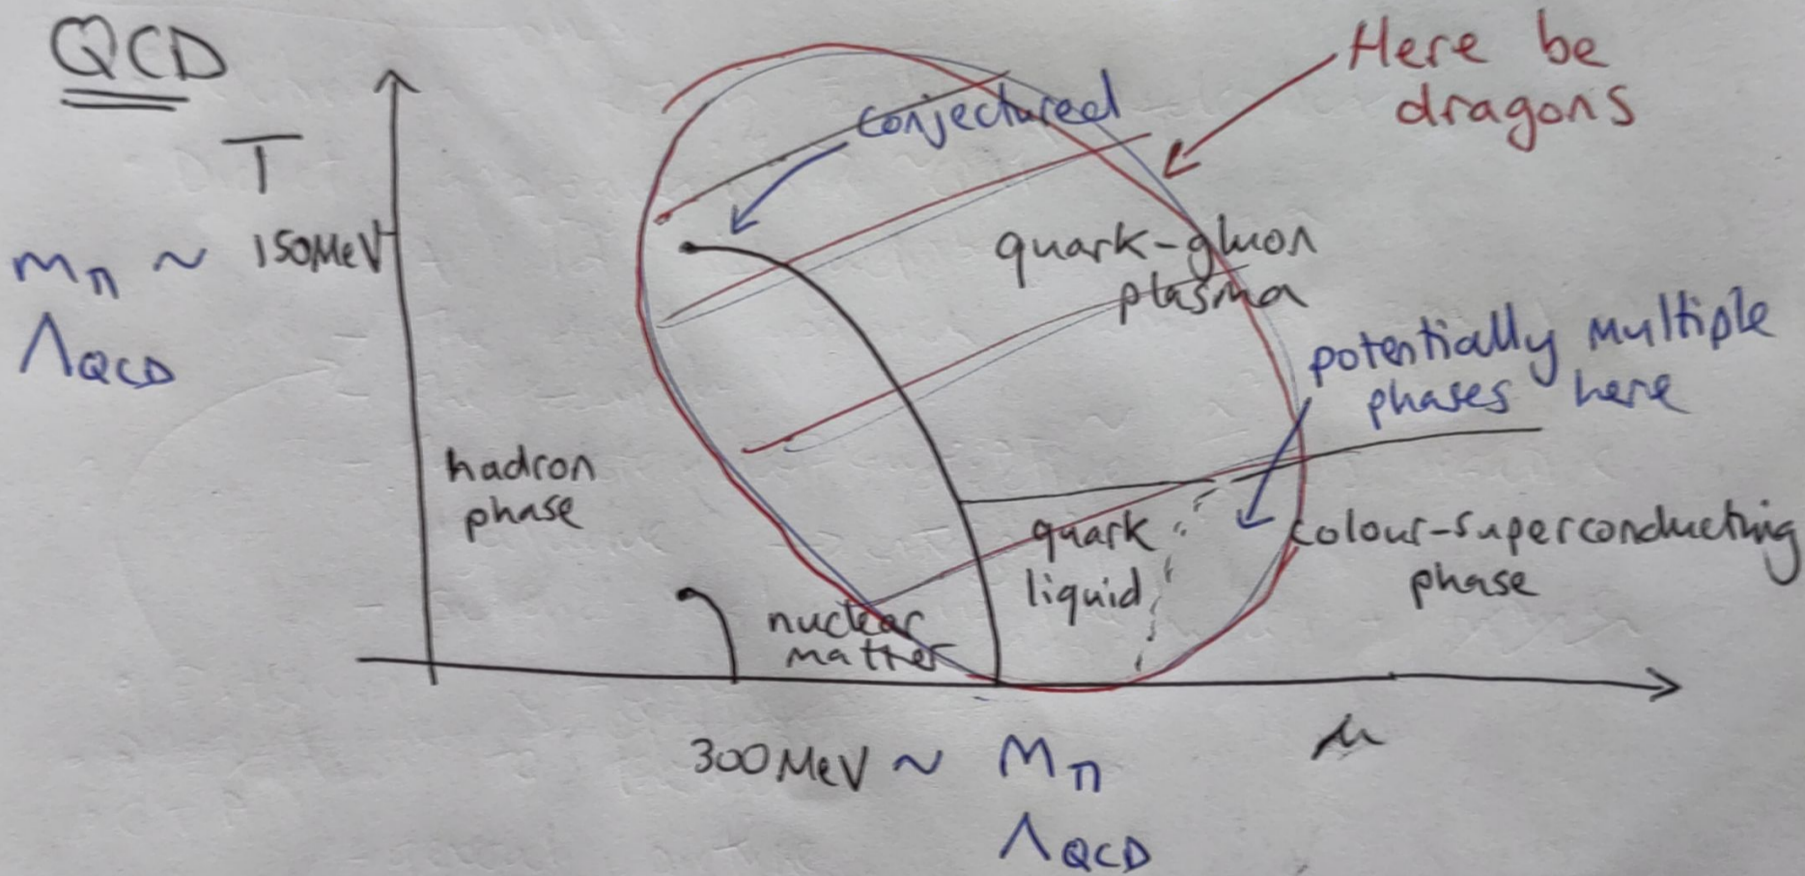 QCD
T
Here be
dragons
conjectured
mπ ~ 150MeV
ΛQCD
quark-gluon
plasma
potentially multiple
phases here
hadron
phase
quark
liquid
colour-superconducting
phase
nuclear
matter
300MeV ~ mπ
ΛQCD
μ